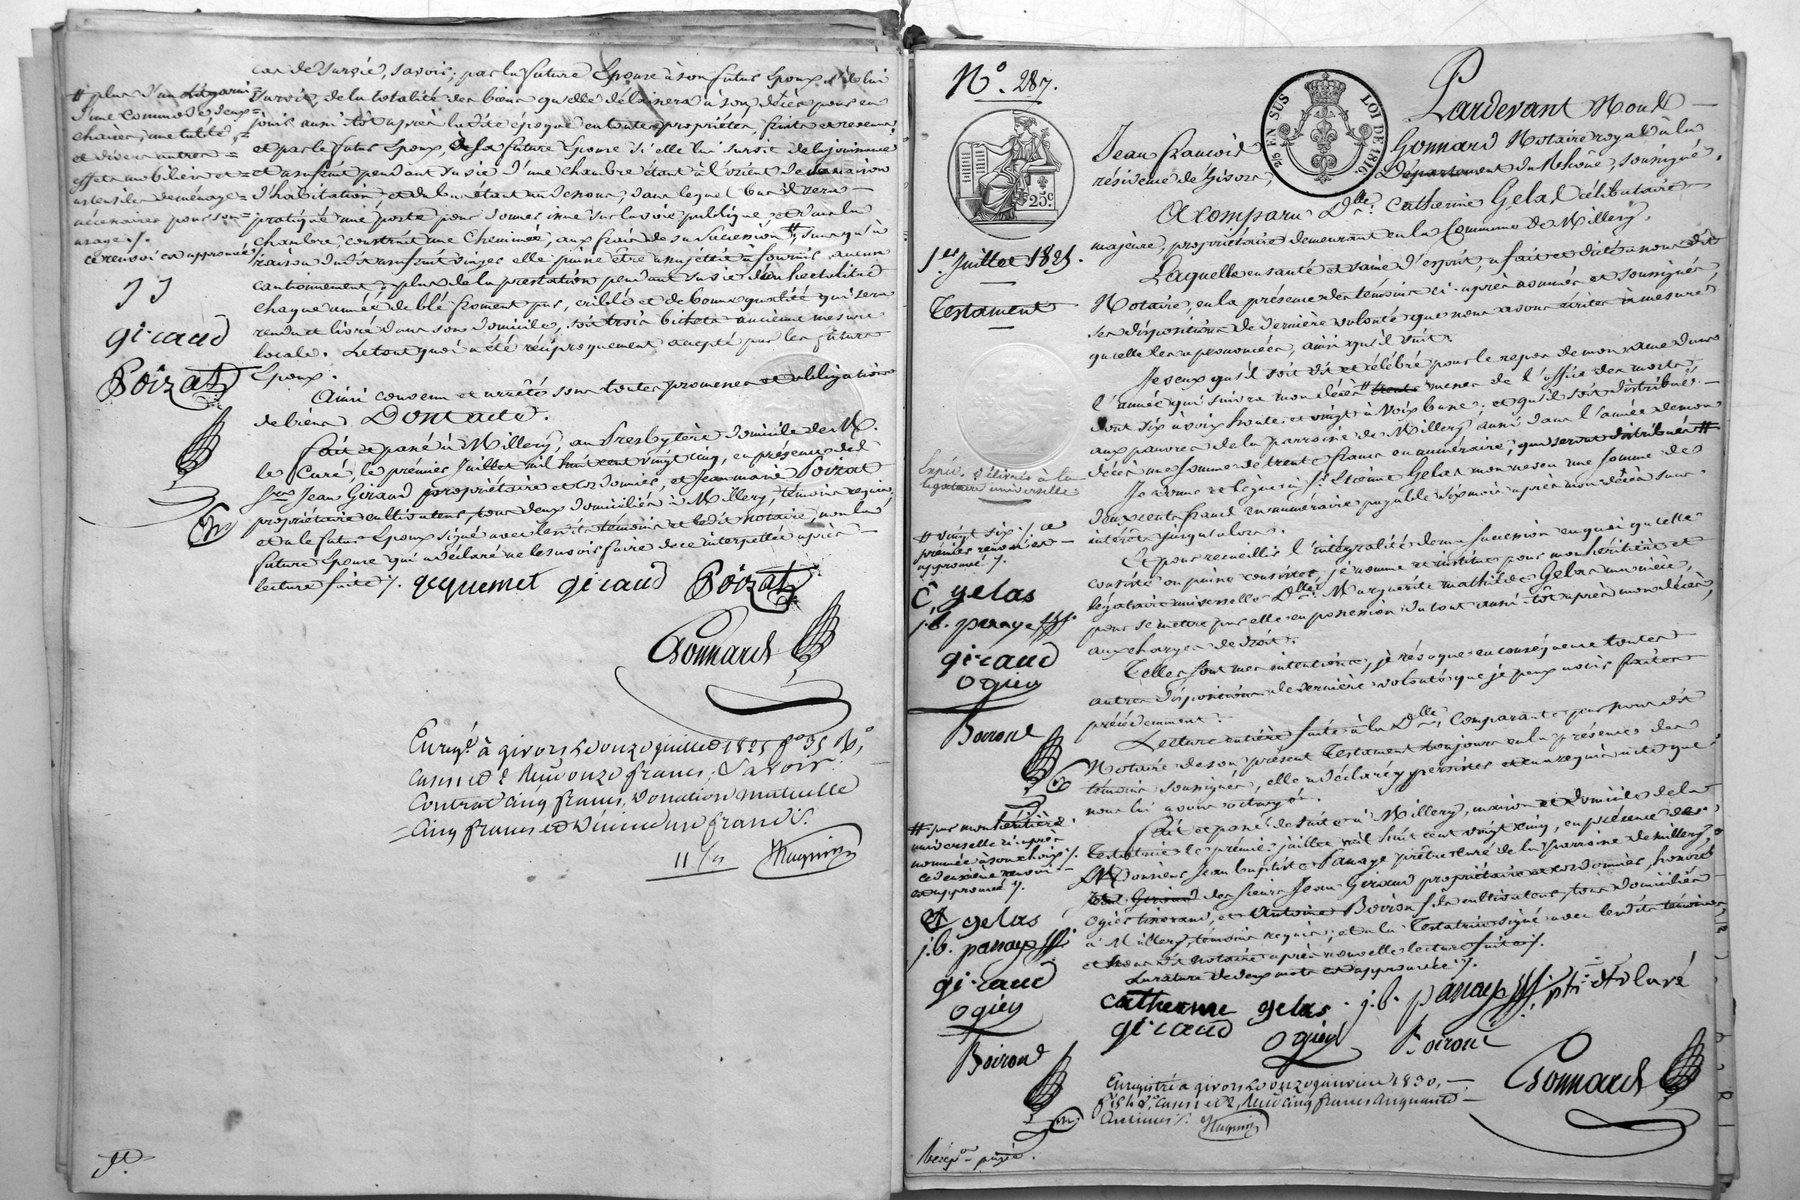 cas de survie, savoir; par la future Epouse à son futur Epoux s'il lui
survit, de la totalité des biens qu'elle délaissera à son décès pour en
jouir aussitôt après la dite époque en toute propriété, fruits et revenus
et par le futur Epoux, à la future Epouse si elle lui survit de la jouissance
et usufruit pendant sa vie d'une chambre étant à l'orient de sa maison
d'habitation, et du bas étant au dessous, dans lequel bas il sera
pratiqué une porte pour donner issue sur la voie publique et dans la
chambre, construit une cheminée, aux frais de sa succession #, sans qu'à
raison du dit usufruit viager elle puisse être assujettie à fournir aucun
cautionnement; plus de la prestation pendant sa vie d'un hectolitre
chaque année de blé froment pur, criblé et de bonne qualité qui sera
rendu et livré dans son domicile, soit trois bichets ancienne mesure
locale. Le tout quoi a été réciproquement accepté par les future
Epoux.
Ainsi convenu et arrêté sous toutes promesses et obligations
de biens Dont acte.
Fait et passé à Millery, au Presbytère domicile de M.
le Curé, le premier Juillet mil huit cent vingt cinq, en présence des
Srs Jean Giraud propriétaire et cordonnier, et Jean marie Poizat
propriétaire cultivateur, tous deux domiciliés à Millery, témoins requis,
et a le futur Epoux signé avec les dits témoins et le dit notaire, non la
future Epouse qui a déclaré ne le savoir faire de ce interpellée après
lecture faite /. gequemet giraud Poizat
Gonnard
# plus d'un lit garni
d'une commode, deux
chaises, une table,
et divers autres
effets mobiliers et
ustensiles de ménage
nécessaires pour son
usage /.
ce renvoi est approuvé
J J
giraud
Poizat
Enregé à givors le onze juillet 1825 fo 35 Ro
case et Reçu onze francs, Savoir:
Contrat cinq francs, Donation mutuelle
cinq francs et Décime un franc /.
11 /
Hugnin
No. 287.
25 EN SUS
LOI DE 1816.
25c
1er Juillet 1825.
Testament
Expée. délivrée à la
légataire universelle
Pardevant Me
Jean François Gonnard Notaire royal à la
résidence de Givors, Département du Rhône, soussigné,
A comparu Dlle. Catherine Gelas, Célibataire
majeure, propriétaire demeurant en la Commune de Millery,
Laquelle en santé et saine d'esprit, a fait et dicté à nous dit
Notaire, en la présence des témoins ci-après nommés et soussignés,
ses dispositions de dernière volonté que nous avons écrites à mesure
qu'elle les a prononcées, ainsi qu'il suit.
Je veux qu'il soit dit et célébré pour le repos de mon ame dans
l'année qui suivra mon décès # trente messes de l'office des morts,
dont six à voix haute et vingt à voix basse, et qu'il soit distribué
aux pauvres de la parroisse de Millery, aussi dans l'année de mon
décès une somme de trente francs en numéraire, qui seront distribués #
Je donne et lègue à Sr Etienne Gelas mon neveu une somme de
deux cents francs en numéraire payable six mois après mon décès sans
intérêts jusqu'alors.
Et pour recueillir l'intégralité de ma succession en quoi qu'elle
consiste ou puisse consister, je nomme et institue pour mon héritière et
légataire universelle Dlle. Marguerite mathilde Gelas ma nièce,
pour se mettre par elle en possession du tout aussi-tôt après mon décès,
aux charges de droit.
Telles sont mes intentions, je révoque en conséquence toutes
autres dispositions de dernière volonté que je peux avoir faites
précédemment.
Lecture entière faite à la Dlle. Comparante par nous dit
Notaire de son présent Testament toujours en la présence des
témoins soussignés, elle a déclaré y persister et en a requis acte que
nous lui avons octroyé.
Fait et passé de suite à Millery, maison et domicile de la
Testatrice le premier juillet mil huit cent vingt cinq, en présence de
Monsieur Jean baptiste Panaye prêtre curé de la parroisse de Millery,
Jean Giraud des sieurs Jean Giraud propriétaire et cordonnier, honoré
Ogier tisserand, et Antoine Boiron fils cultivateur, tous domiciliés
à Millery, témoins requis; et a la Testatrice signé avec les dits témoins
et nous dit notaire après nouvelle lecture faite /.
La rature de deux mots est approuvée /.
catherine gelas. j. b. panaye ptre et curé
giraud ogier Boiron
Gonnard
# vingt six /. ce
premier renvoi est
approuvé /.
C, gelas
j. b. panaye
giraud
ogier
Boiron
# par mon héritière
universelle ci-après
nommée à son choix /.
ce deuxième renvoi
est approuvé /.
C gelas
j. b. panaye
giraud
ogier
Boiron
Enregistré à givors le onze janvier 1830,
case et 2, Reçu cinq francs cinquante
centimes /. Hugnin